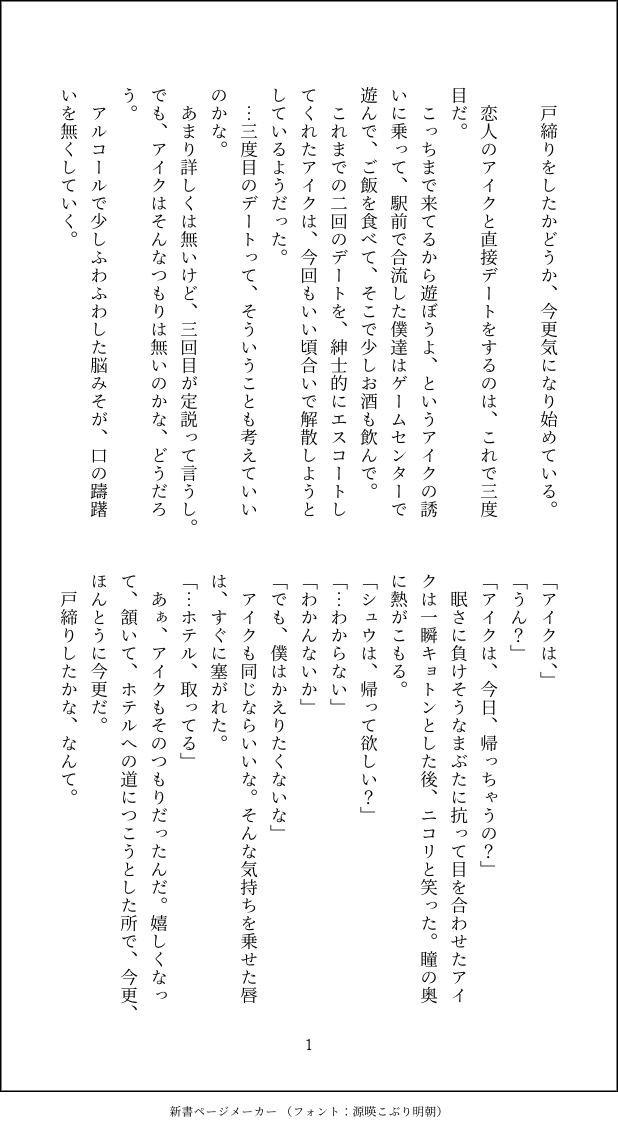 戸締りをしたかどうか、今更気になり始めている。
恋人のアイクと直接デートをするのは、これで三度
目だ。
こっちまで来てるから遊ぼうよ、というアイクの誘
いに乗って、駅前で合流した僕達はゲームセンターで
遊んで、ご飯を食べて、そこで少しお酒も飲んで。
これまでの二回のデートを、紳士的にエスコートし
てくれたアイクは、今回もいい頃合いで解散しようと
しているようだった。
…三度目のデートって、そういうことも考えていい
のかな。
あまり詳しくは無いけど、三回目が定説って言うし。
でも、アイクはそんなつもりは無いのかな、どうだろ
う。
アルコールで少しふわふわした脳みそが、口の躊躇
いを無くしていく。
「アイクは、」
「うん？」
「アイクは、今日、帰っちゃうの？」
眠さに負けそうなまぶたに抗って目を合わせたアイ
クは一瞬キョトンとした後、ニコリと笑った。瞳の奥
に熱がこもる。
「シュウは、帰って欲しい？」
「…わからない」
「わかんないか」
「でも、僕はかえりたくないな」
アイクも同じならいいな。そんな気持ちを乗せた唇
は、すぐに塞がれた。
「…ホテル、取ってる」
あぁ、アイクもそのつもりだったんだ。嬉しくなっ
て、頷いて、ホテルへの道につこうとした所で、今更、
ほんとうに今更だ。
戸締りしたかな、なんて。
1
新書ページメーカー（フォント：源暎こぶり明朝）